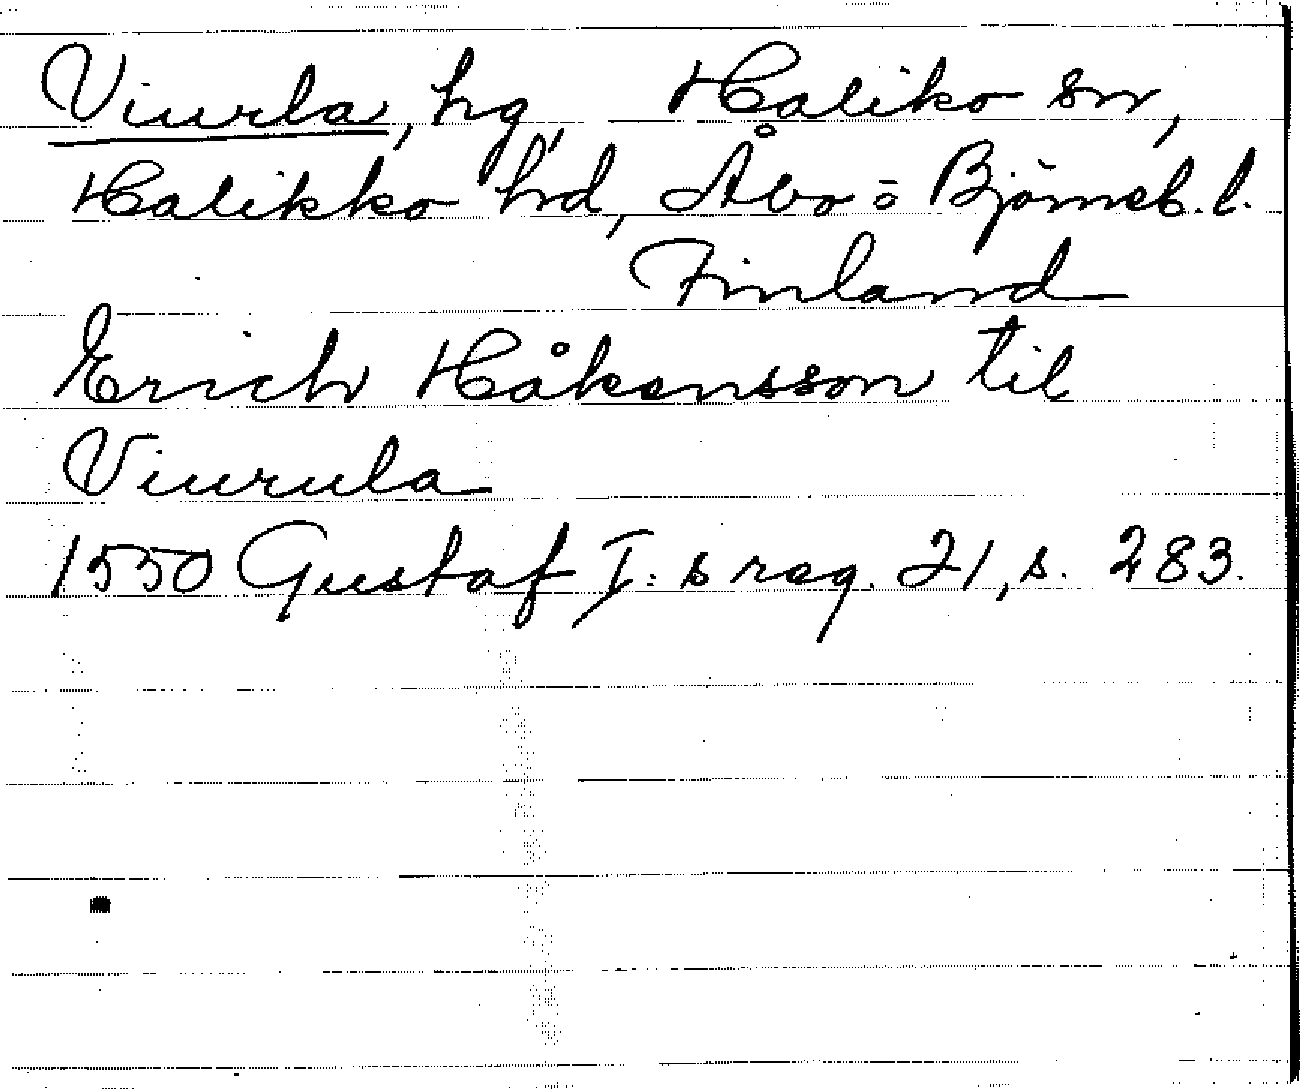 Viurla, hg, Haliko sn,
Halikko hd, Åbo=Björneb. l.
Finland
Erich Håkansson til
Viurula
1550 Gustaf I:s reg. 21, s. 283.